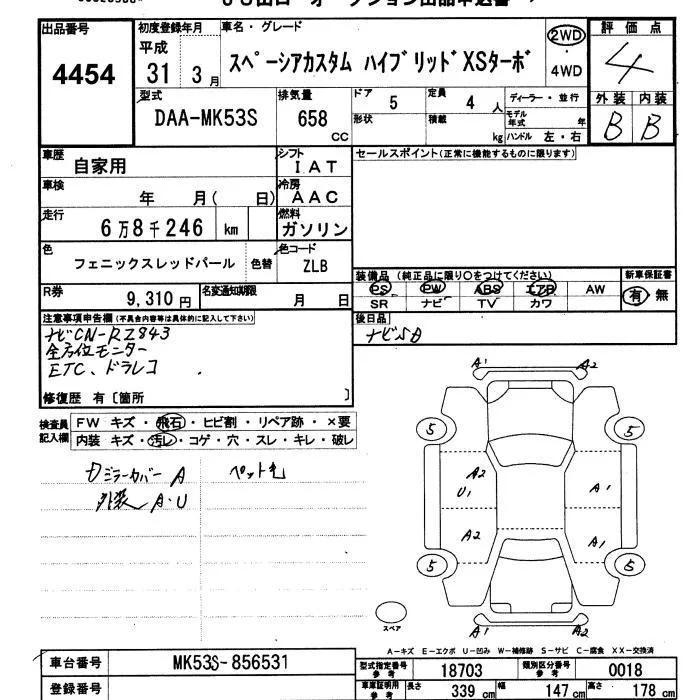 出品番号
4454
初度登録年月
平成
31 3月
車名・グレード
スペーシアカスタム ハイブリッドXSターボ
2WD
・
4WD
評価点
4
外装 内装
B B
型式
DAA-MK53S
排気量
658
CC
ドア
5
形状
定員
4 人
積載
kg
ディーラー・並行
モデル年式 年
ハンドル 左・右
車歴
自家用
シフト
IAT
車検
年 月( 日)
冷房
AAC
走行
6万8千246 km
燃料
ガソリン
色
フェニックスレッドパール
色替
色コード
ZLB
R券
9,310円
名変通知期限
月 日
セールスポイント(正常に機能するものに限ります)
装備品 (純正品に限り○をつけてください)
PS PW ABS エアB AW
SR ナビ TV カワ
新車保証書
有 無
後日品
ナビSD
注意事項申告欄(不具合内容等は具体的に記入して下さい)
ナビCN-RZ843
全方位モニター
ETC、ドラレコ
修復歴 有〔箇所 〕
検査員
記入欄
FW キズ・飛石・ヒビ割・リペア跡・×要
内装 キズ・汚レ・コゲ・穴・スレ・キレ・破レ
ミラーカバー A
ペット毛
外装 A・U
A1 A2
5 5
A2
U1
A1
A2
A1
5 5
スペア
A1 A2
A-キズ E-エクボ U-凹み W-補修跡 S-サビ C-腐食 XX-交換済
車台番号
MK53S-856531
登録番号
型式指定番号
参考
18703
類別区分番号
参考
0018
車庫証明用
参考
長さ
339 cm
幅
147 cm
高さ
178 cm